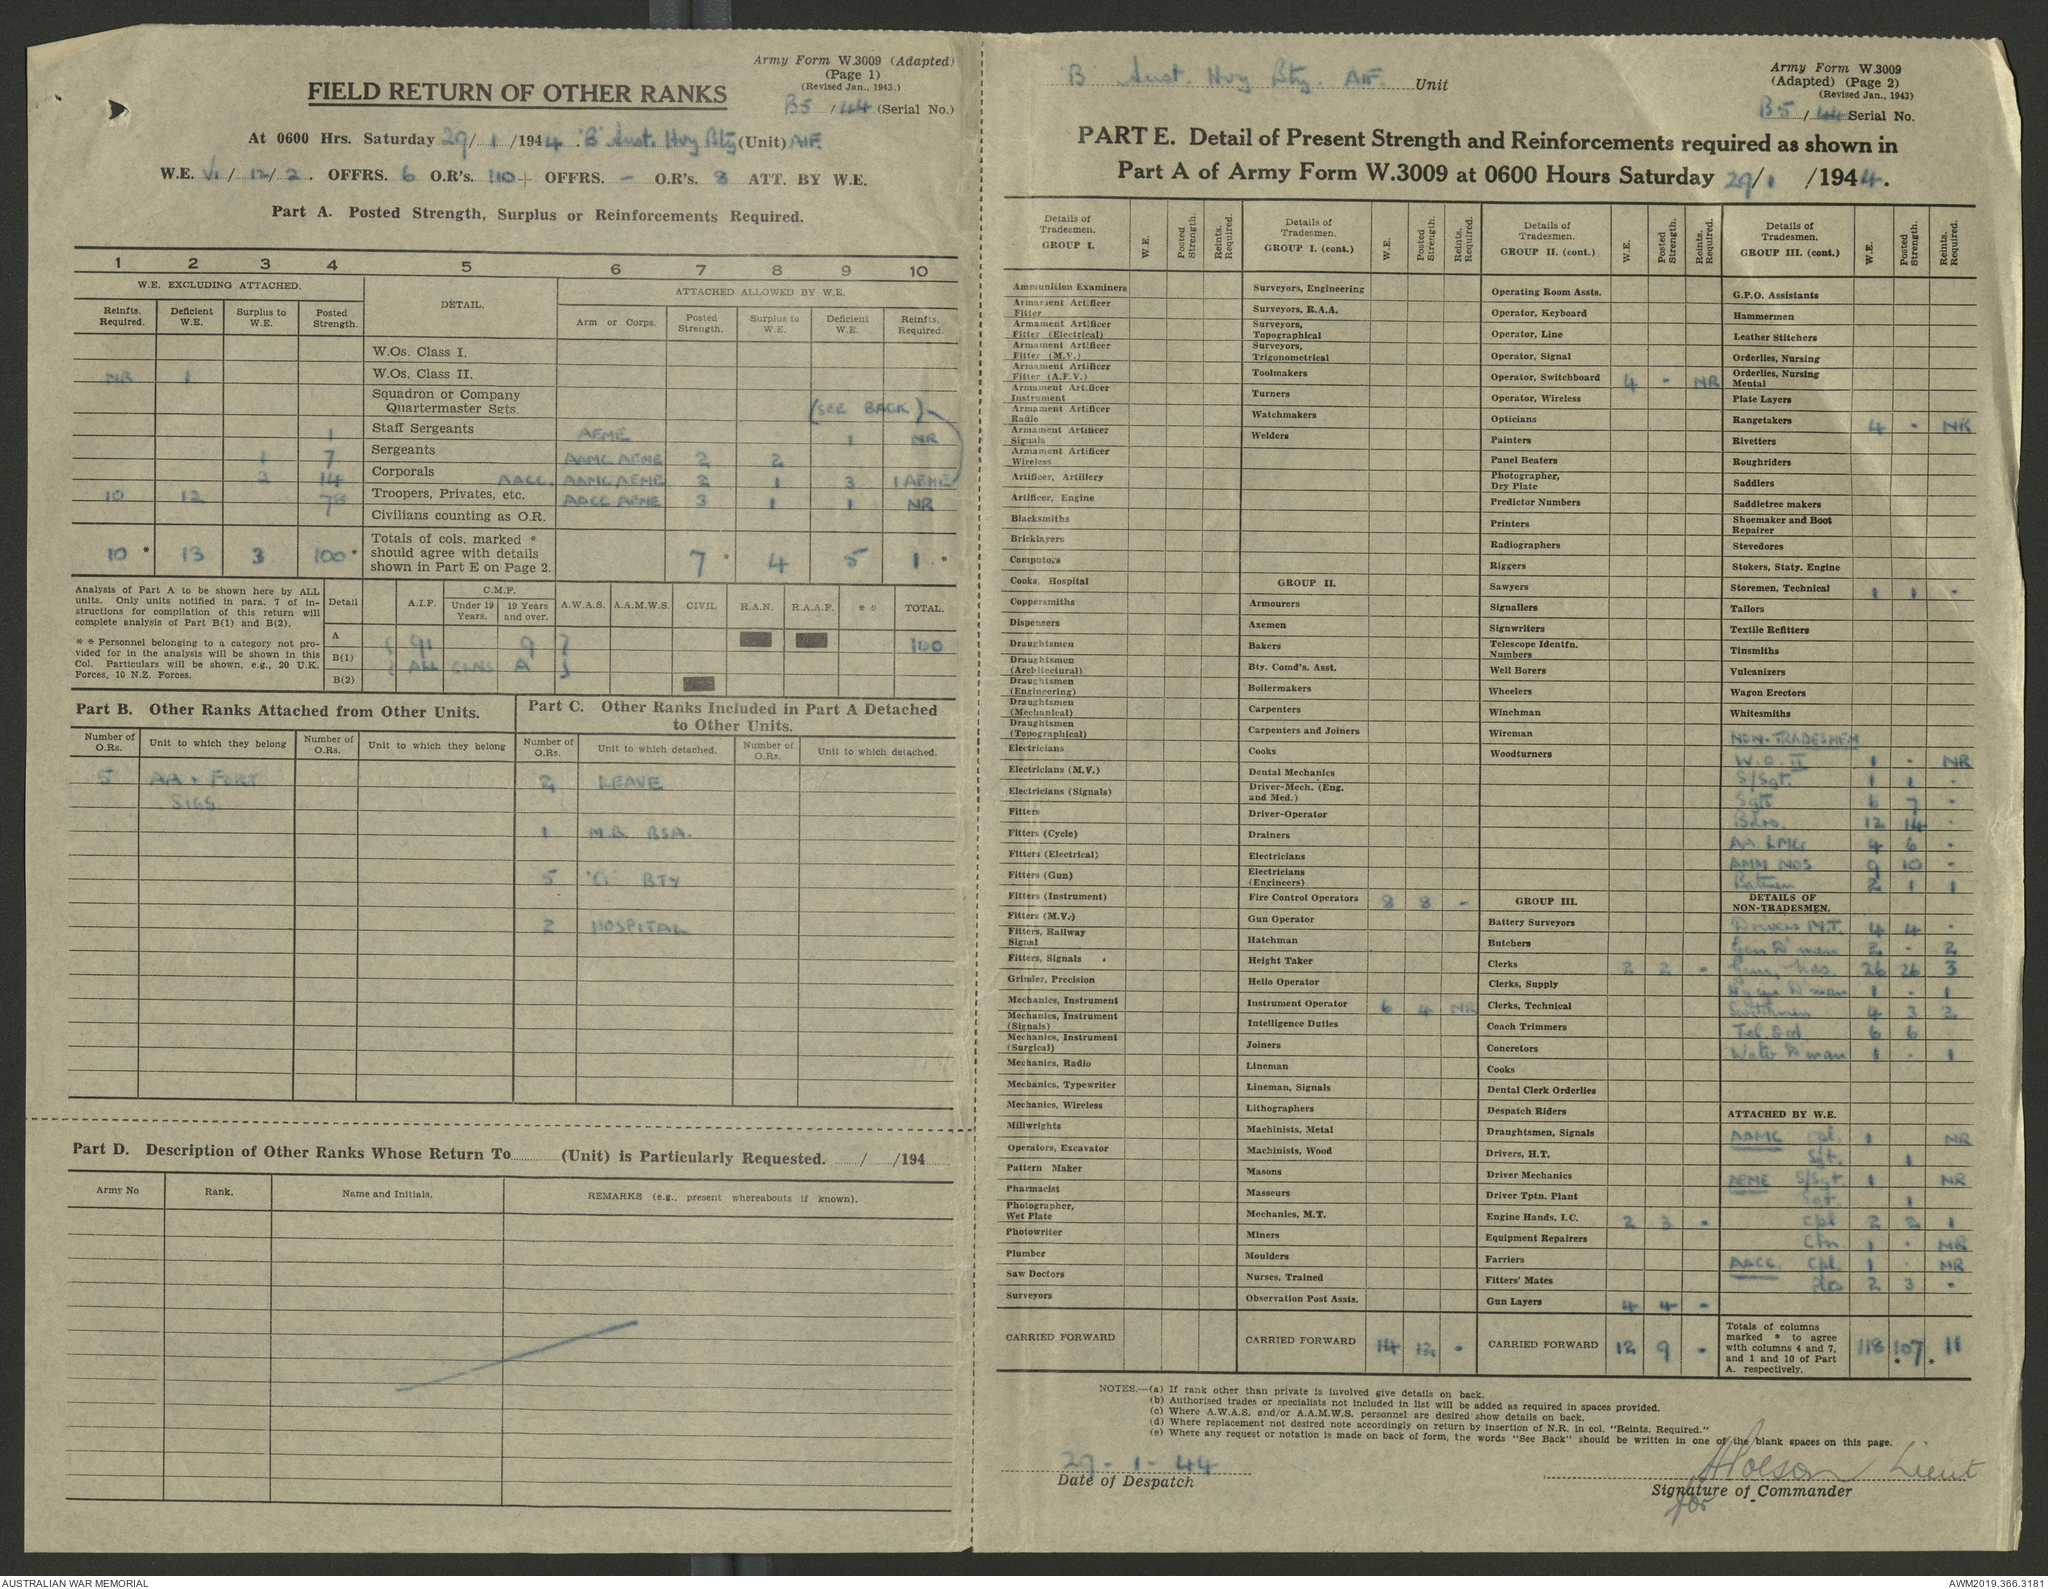 Army Form W.3009 (Adapted)
(Page 1)
(Revised Jan., 1943.)
B5 / 44 (Serial No.)
FIELD RETURN OF OTHER RANKS
At 0600 Hrs. Saturday 29/ 1 /1944. 'B' Aust. Hvy Bty (Unit) AIF.
W.E. VI/ 12/ 2. OFFRS. 6 O.R's. 110 + OFFRS. - O.R's. 8 ATT. BY W.E.
Part A. Posted Strength, Surplus or Reinforcements Required.
1 2 3 4 5 6 7 8 9 10
W.E. EXCLUDING ATTACHED. DETAIL. ATTACHED ALLOWED BY W.E.
Reinfts. Required. Deficient W.E. Surplus to W.E. Posted Strength. Arm or Corps. Posted Strength. Surplus to W.E. Deficient W.E. Reinfts. Required.
W.Os. Class I.
NR 1 W.Os. Class II.
Squadron or Company Quartermaster Sgts. (SEE BACK)
1 Staff Sergeants AEME 1 NR
1 7 Sergeants AAMC AEME 2 2
2 14 Corporals AACC. AAMC AEME 2 1 3 1 AEME
10 12 78 Troopers, Privates, etc. AACC AEME 3 1 1 NR
Civilians counting as O.R.
10 * 13 3 100 * Totals of cols. marked * should agree with details shown in Part E on Page 2. 7 * 4 5 1 *
Analysis of Part A to be shown here by ALL units. Only units notified in para. 7 of instructions for compilation of this return will complete analysis of Part B(1) and B(2).
* * Personnel belonging to a category not provided for in the analysis will be shown in this Col. Particulars will be shown, e.g., 20 U.K. Forces, 10 N.Z. Forces.
Detail A.I.F. C.M.F. Under 19 Years. 19 Years and over. A.W.A.S. A.A.M.W.S. CIVIL R.A.N. R.A.A.F. * * TOTAL.
A 91 9 100
B(1) ALL CLASS A
B(2)
Part B. Other Ranks Attached from Other Units.
Number of O.Rs. Unit to which they belong Number of O.Rs. Unit to which they belong
5 AA & FORT
SIGS
Part C. Other Ranks Included in Part A Detached to Other Units.
Number of O.Rs. Unit to which detached. Number of O.Rs. Unit to which detached.
2 LEAVE
1 M.B. BSA.
5 'G' BTY
2 HOSPITAL
Part D. Description of Other Ranks Whose Return To (Unit) is Particularly Requested. / /194
Army No Rank. Name and Initials. REMARKS (e.g., present whereabouts if known).
'B' Aust. Hvy Bty. AIF. Unit
Army Form W.3009
(Adapted) (Page 2)
(Revised Jan., 1943)
B5 / 44 Serial No.
PART E. Detail of Present Strength and Reinforcements required as shown in
Part A of Army Form W.3009 at 0600 Hours Saturday 29/1 /1944.
Details of Tradesmen. GROUP I. W.E. Posted Strength. Reints. Required.
Ammunition Examiners
Armament Artificer Fitter
Armament Artificer Fitter (Electrical)
Armament Artificer Fitter (M.V.)
Armament Artificer Fitter (A.F.V.)
Armament Artificer Instrument
Armament Artificer Radio
Armament Artificer Signals
Armament Artificer Wireless
Artificer, Artillery
Artificer, Engine
Blacksmiths
Bricklayers
Computors
Cooks, Hospital
Coppersmiths
Dispensers
Draughtsmen
Draughtsmen (Architectural)
Draughtsmen (Engineering)
Draughtsmen (Mechanical)
Draughtsmen (Topographical)
Electricians
Electricians (M.V.)
Electricians (Signals)
Fitters
Fitters (Cycle)
Fitters (Electrical)
Fitters (Gun)
Fitters (Instrument)
Fitters (M.V.)
Fitters, Railway Signal
Fitters, Signals
Grinder, Precision
Mechanics, Instrument
Mechanics, Instrument (Signals)
Mechanics, Instrument (Surgical)
Mechanics, Radio
Mechanics, Typewriter
Mechanics, Wireless
Millwrights
Operators, Excavator
Pattern Maker
Pharmacist
Photographer, Wet Plate
Photowriter
Plumber
Saw Doctors
Surveyors
CARRIED FORWARD
Details of Tradesmen. GROUP I. (cont.) W.E. Posted Strength. Reints. Required.
Surveyors, Engineering
Surveyors, R.A.A.
Surveyors, Topographical
Surveyors, Trigonometrical
Toolmakers
Turners
Watchmakers
Welders
GROUP II.
Armourers
Axemen
Bakers
Bty. Comd's. Asst.
Boilermakers
Carpenters
Carpenters and Joiners
Cooks
Dental Mechanics
Driver-Mech. (Eng. and Med.)
Driver-Operator
Drainers
Electricians
Electricians (Engineers)
Fire Control Operators 8 8 -
Gun Operator
Hatchman
Height Taker
Helio Operator
Instrument Operator 6 4 NR
Intelligence Duties
Joiners
Lineman
Lineman, Signals
Lithographers
Machinists, Metal
Machinists, Wood
Masons
Masseurs
Mechanics, M.T.
Miners
Moulders
Nurses, Trained
Observation Post Assts.
CARRIED FORWARD 14 12 -
Details of Tradesmen. GROUP II. (cont.) W.E. Posted Strength. Reints. Required.
Operating Room Assts.
Operator, Keyboard
Operator, Line
Operator, Signal
Operator, Switchboard 4 - NR
Operator, Wireless
Opticians
Painters
Panel Beaters
Photographer, Dry Plate
Predictor Numbers
Printers
Radiographers
Riggers
Sawyers
Signallers
Signwriters
Telescope Identfn. Numbers
Well Borers
Wheelers
Winchman
Wireman
Woodturners
GROUP III.
Battery Surveyors
Butchers
Clerks 2 2 -
Clerks, Supply
Clerks, Technical
Coach Trimmers
Concretors
Cooks
Dental Clerk Orderlies
Despatch Riders
Draughtsmen, Signals
Drivers, H.T.
Driver Mechanics
Driver Tptn. Plant
Engine Hands, I.C. 2 3 -
Equipment Repairers
Farriers
Fitters' Mates
Gun Layers 4 4 -
CARRIED FORWARD 12 9 -
Details of Tradesmen. GROUP III. (cont.) W.E. Posted Strength. Reints. Required.
G.P.O. Assistants
Hammermen
Leather Stitchers
Orderlies, Nursing
Orderlies, Nursing Mental
Plate Layers
Rangetakers 4 - NR
Rivetters
Roughriders
Saddlers
Saddletree makers
Shoemaker and Boot Repairer
Stevedores
Stokers, Staty. Engine
Storemen, Technical 1 1 -
Tailors
Textile Refitters
Tinsmiths
Vulcanizers
Wagon Erectors
Whitesmiths
NON-TRADESMEN
W.O. II 1 - NR
S/Sgt. 1 1 -
Sgts 7 -
Bdrs. 12 14 -
AA LMGs 4 6 -
AMM NOS 9 10 -
Batmen 2 1 1
DETAILS OF NON-TRADESMEN.
Drivers M.T. 4 4 -
Gen D'men 2 - 2
Gun, Nos. 26 26 3
1 - 1
Switchmen 4 3 2
Tel. 6 6
Water D'man 1 - 1
ATTACHED BY W.E.
AAMC Cpl. 1 NR
Sgt. 1
AEME S/Sgt 1 NR
Sgt. 1
Cpl 2 2 1
Cfn. 1 - NR
AACC. Cpl. 1 - NR
Ptes 2 3 -
Totals of columns marked * to agree with columns 4 and 7, and 1 and 10 of Part A. respectively. 118 107 * 11 *
NOTES.—(a) If rank other than private is involved give details on back.
(b) Authorised trades or specialists not included in list will be added as required in spaces provided.
(c) Where A.W.A.S. and/or A.A.M.W.S. personnel are desired show details on back.
(d) Where replacement not desired note accordingly on return by insertion of N.R. in col. "Reints. Required."
(e) Where any request or notation is made on back of form, the words "See Back" should be written in one of the blank spaces on this page.
29 - 1 - 44
Date of Despatch
Lieut
Signature of Commander
for
AUSTRALIAN WAR MEMORIAL
AWM2019.366.3181